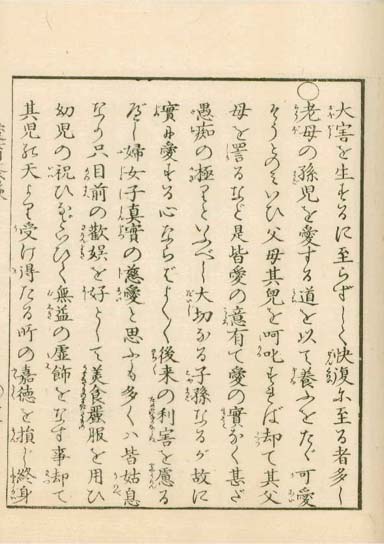 大害を生ずるに至らずして快復に至る者多し
○老母の孫児を愛する道を以て養ふをたゞ可愛
そうとのミいひ父母其兒を呵叱すれば却て其父
母を詈るなど是皆愛の意有て愛の實なく甚ざ
愚痴の極りといふべし大切なる子孫なるが故に
實に愛する心ならばよく〳〵後来の利害を慮る
べし婦女子真實の慈愛と思ふも多くハ皆姑息
なり只目前の歡娯を好としてて美食麗服を用ひ
幼児の祝ひなどにもひたすら無益の虚飾をなす事却て
其児の天より受け得たる所の嘉徳を損じ終身